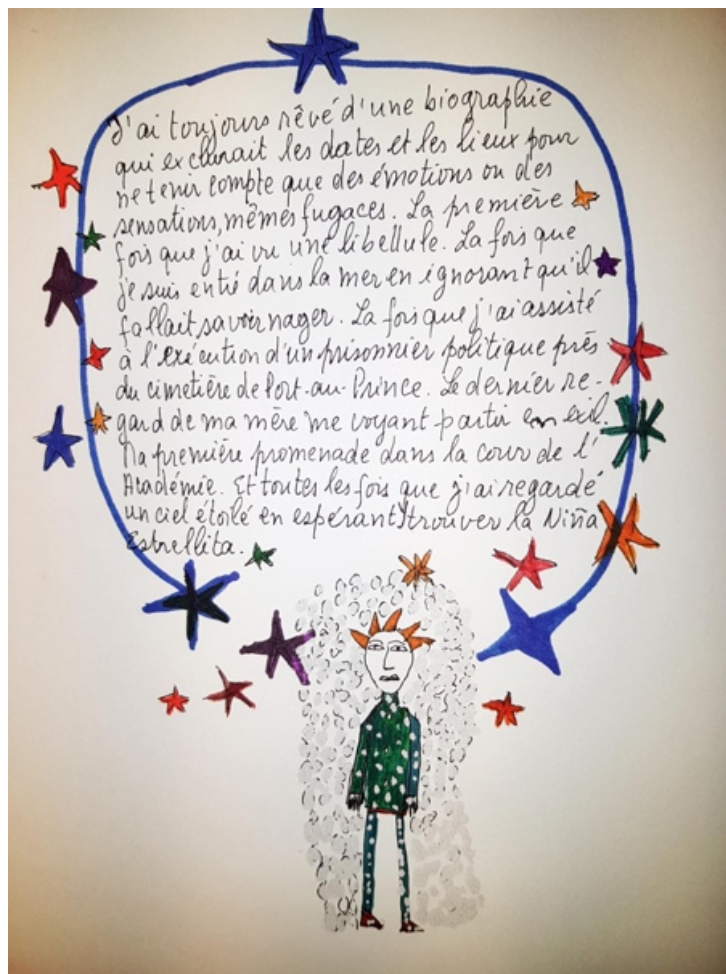 J'ai toujours rêvé d'une biographie
qui exclurait les dates et les lieux pour
ne tenir compte que des émotions ou des
sensations, mêmes fugaces. La première
fois que j'ai vu une libellule. La fois que
je suis entré dans la mer en ignorant qu'il
fallait savoir nager. La fois que j'ai assisté
à l'exécution d'un prisonnier politique près
du cimetière de Port-au-Prince. Le dernier re-
gard de ma mère me voyant partir en exil.
Ma première promenade dans la cour de l'
Académie. Et toutes les fois que j'ai regardé
un ciel étoilé en espérant trouver la Niña
Estrellita.